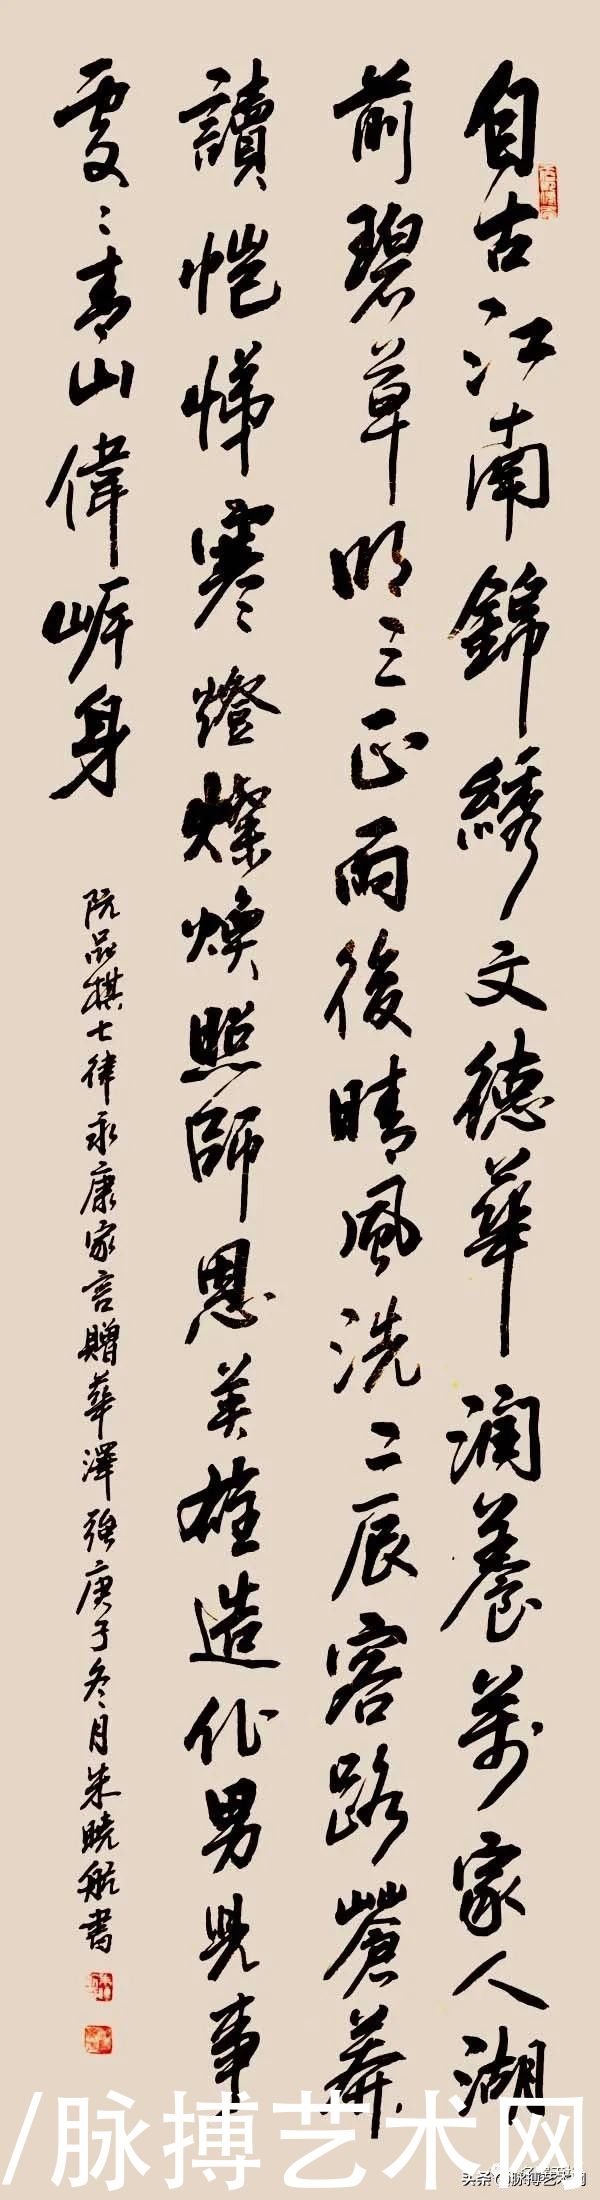 自古江南錦綉文德華潤養萬家人湖
前碧草明三正雨後晴風洗二辰客路蒼莽
讀愷悌寒燈燦煥照師恩英雄造化男児事
處〻青山偉岸身
阮品棋七律永康家言贈華澤強庚子冬月朱曉航書
/脉搏艺术网
头条@脉搏艺术网